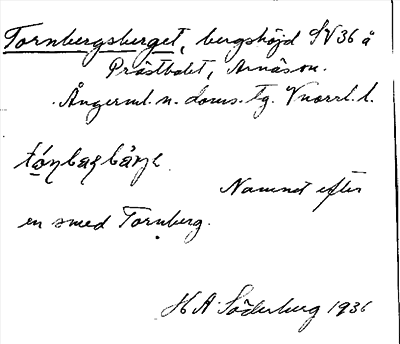 Tornbergsberget, bergshöjd SV 36 å
Prästbolet, Arnäs sn.
Ångerml. n. doms. tg. Vnorrl. l.
Namnet efter
en smed Tornberg.
H A Söderberg 1936